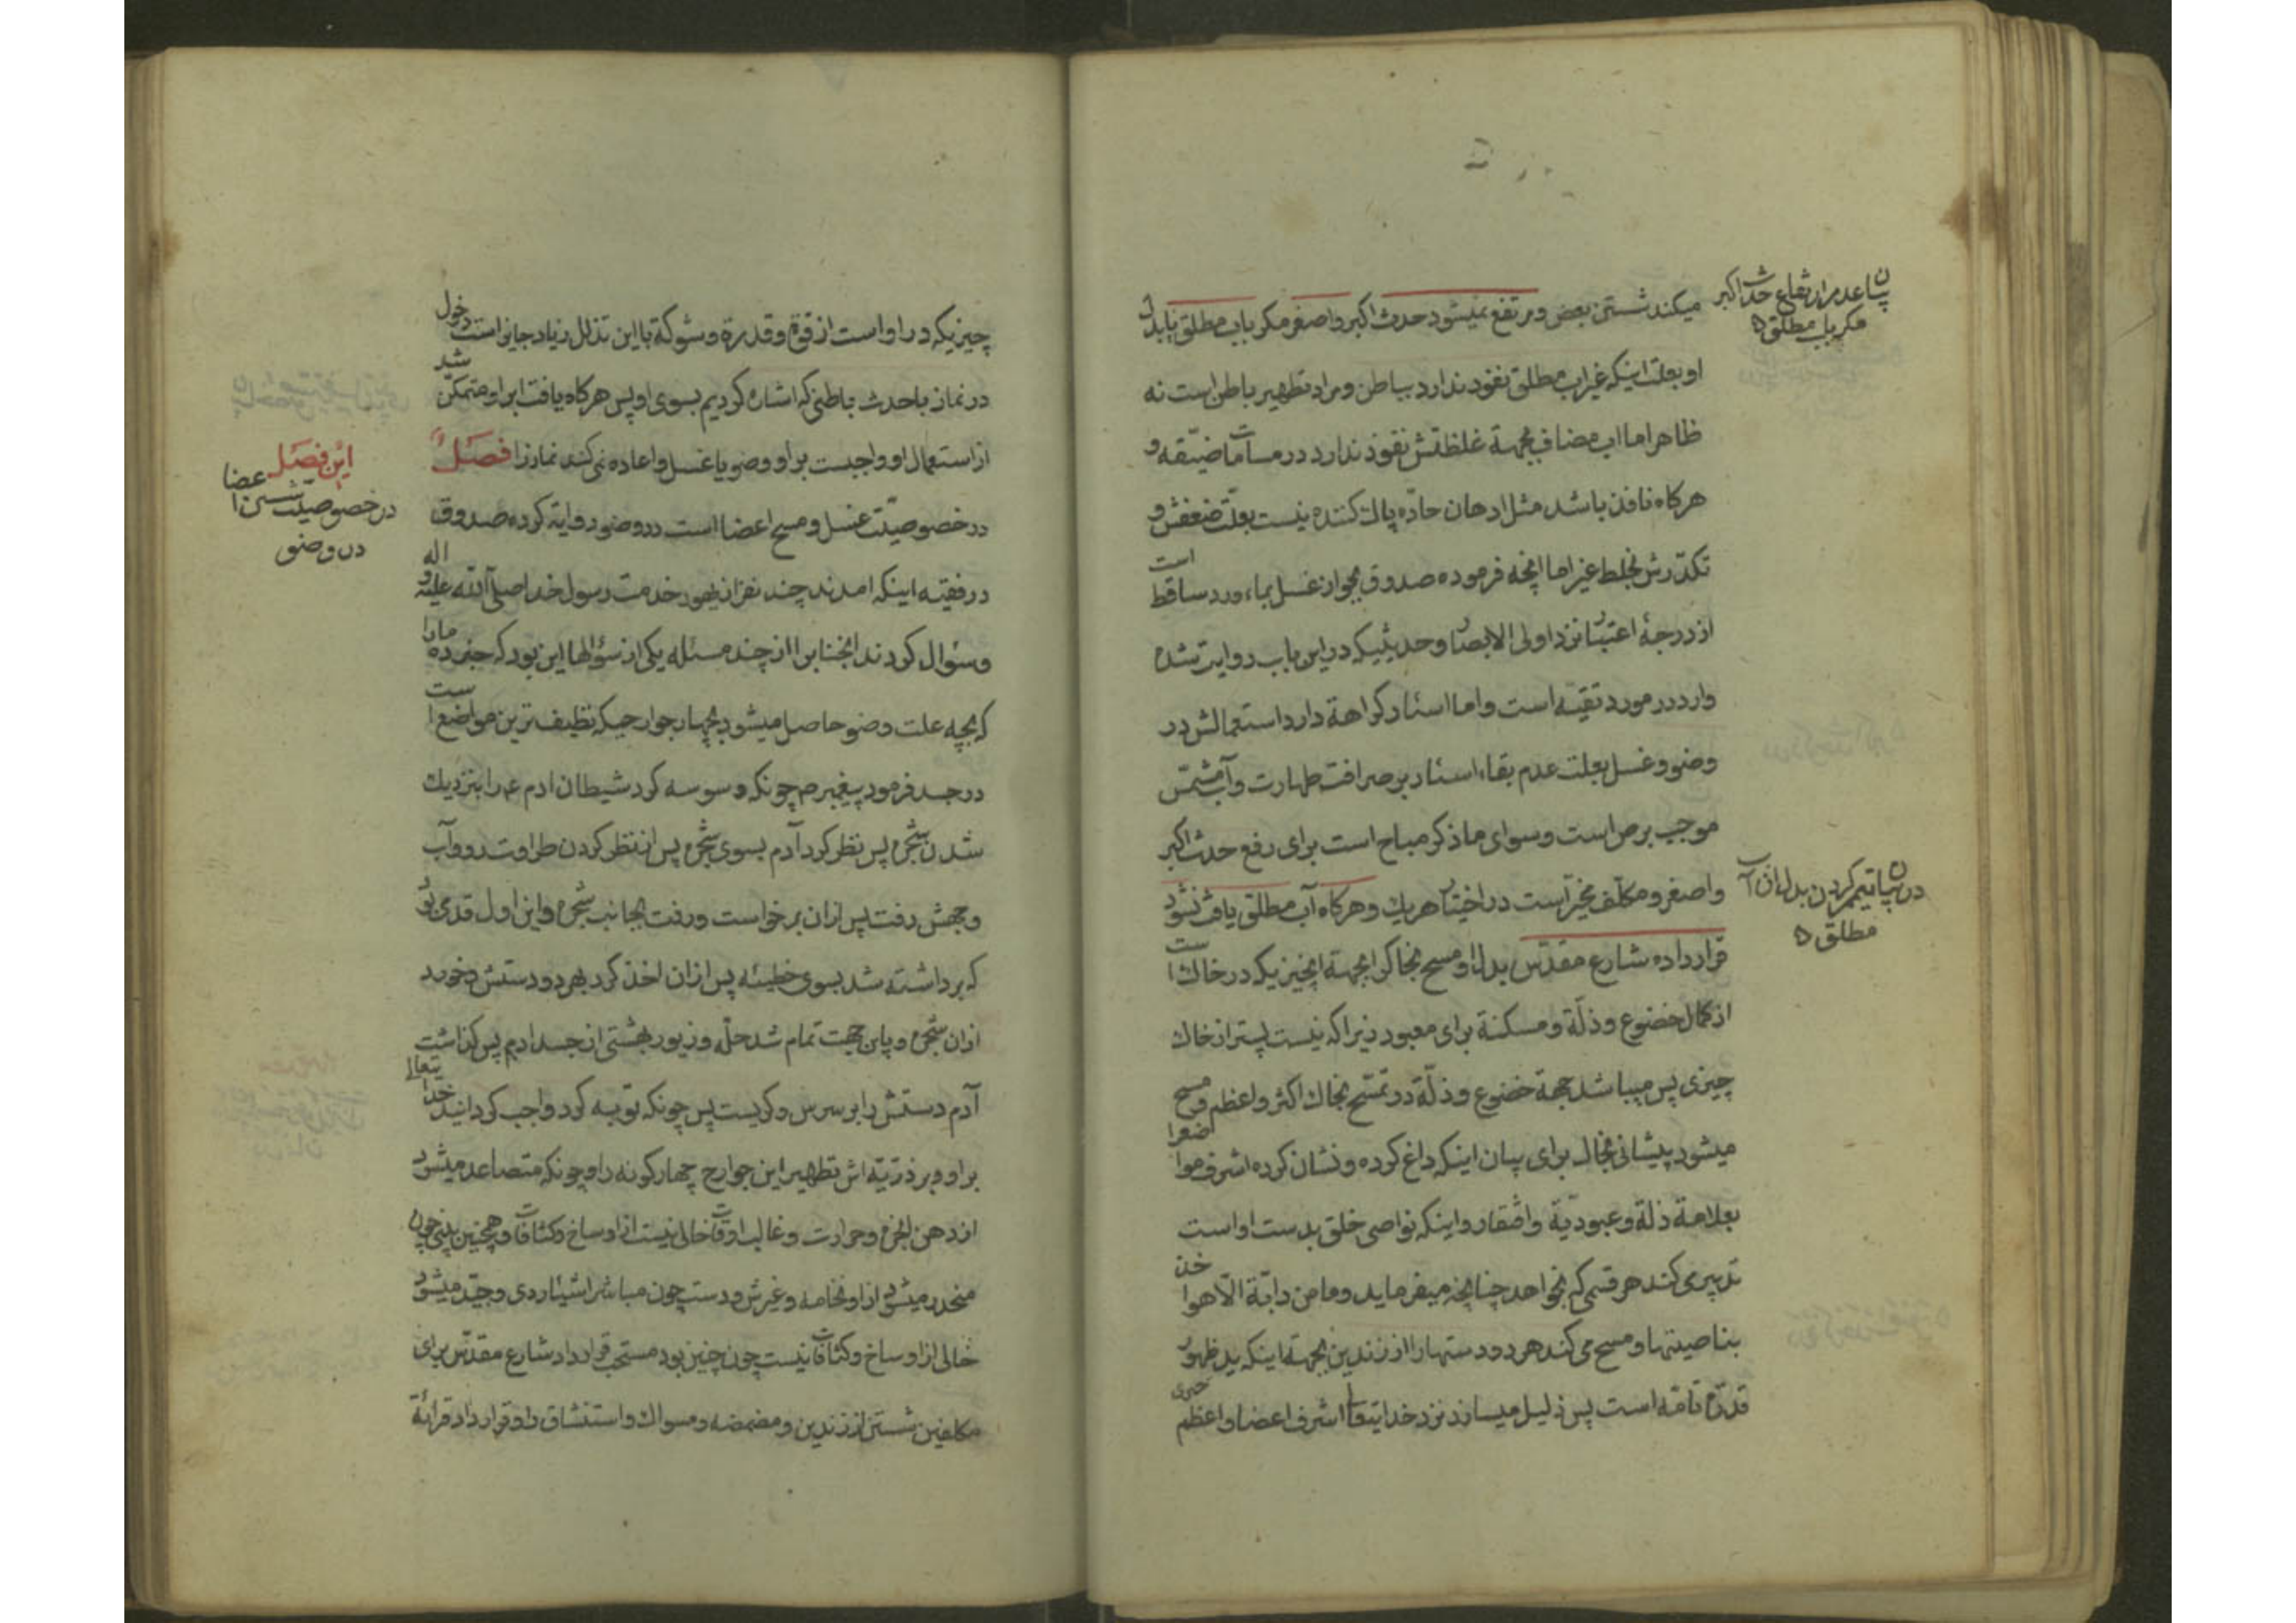 بیان عدم ارتفاع حدث اکبر
مکر باب مطلق
میکند شستن بعض و مرتفع نمیشود حدث اکبر و اصغر مکر باب مطلق یا بدل
او بعلت اینکه غیر اب مطلق نفوذ ندارد بباطن و مراد تطهیر باطن است نه
ظاهر اما اب مضاف بجهة غلظتش نفوذ ندارد در مسامات ضیّقه و
هرکاه نافذ باشد مثل ادهان حادّه پاک کننده نیست بعلّت ضعفش و
تکدّرش بخلط غیر اما انچه فرموده صدوق بجواز غسل بماء ورد ساقط است
از درجهٔ اعتبار نزد اولی الابصار و حدیثیکه در این باب روایت شده
وارد در مورد تقیه است و اما اسئار کراهة دارد استعمالش در
وضو و غسل بعلت عدم بقاء اسئار بر صرافت طهارت و آب مشمّس
موجب برص است و سوای ما ذکر مباح است برای رفع حدث اکبر
در بیان تیمم کردن بدل از آب
مطلق
و اصغر و مکلّف مخیّر است در اختیار هر یک و هرکاه آب مطلق یافت نشود
قرار داده شارع مقدّس بدل او مسح بخاک را بجهة انچیزیکه در خاک است
از کمال خضوع و ذلّة و مسکنة برای معبود زیرا که نیست پستر از خاک
چیزی پس میباشد جهة خضوع و ذلّة در تمسّح بخاک اکثر و اعظم و مسح
میشود پیشانی بخاک برای بیان اینکه داغ کرده و نشان کرده اشرف مواضع را
بعلامة ذلة و عبودیّة و افتقار و اینکه نواصی خلق بدست او است
تدبیر می کند هر قسمی که بخواهد چنانچه میفرماید و ما من دابّة الّا هو اخذ
بناصیتها و مسح می کند هر دو دستها را از زندین بجهة اینکه ید ظهور
قدرة تامّه است پس ذلیل میسازد نزد خدایتعالی اشرف اعضا و اعظم
چیزیکه در او است از قوة و قدرة و شوکة با این تذلل زیاد جایز است دخول
در نماز با حدث باطنی که اشاره کردیم بسوی او پس هرکاه یافت اب را و متمکّن شد
از استعمال او واجبست بر او وضو یا غسل و اعاده نمی کند نماز را فصلٌ
این فصل
در خصوصیّت شستن اعضا
در وضو
در خصوصیّت غسل و مسح اعضا است در وضو روایة کرده صدوق
در فقیه اینکه امدند چند نفر از یهود خدمت رسول خدا صلّی الله علیه و اله
و سئوال کردند انجناب را از چند مسئله یکی از سؤالها این بود که خبر ده مارا
که بچه علت وضو حاصل میشود بچهار جوارحیکه نظیف ترین مواضع است
در جسد فرمود پیغمبر ص چونکه وسوسه کرد شیطان ادم ع را بنزدیک
شدن شجره پس نظر کرد آدم بسوی شجره پس از نظر کردن طراوت رو و آب
وجهش رفت پس ازان برخواست و رفت بجانب شجره و این اول قدمی بود
که برداشته شد بسوی خطیئه پس ازان اخذ کرد بهر دو دستش و خورد
ازان شجره و باین جهت تمام شد حلّه و زیور بهشتی از جسد ادم پس کذاشت
آدم دستش را بر سرش و کریست پس چونکه توبه کرد واجب کردانید خدا یتعالی
بر او و بر ذرّیّه اش تطهیر این جوارح چهارکونه را و چونکه متصاعد میشود
از دهن ابخره و حرارت و غالب اوقات خالی نیست از اوساخ و کثافات و همچنین بینی چون
منحدر میشود از او نخامه و غیرش و دست چون مباشر اشیاء ردی و جیّد میشود
خالی از اوساخ و کثافات نیست چون چنین بود مستحب قرار داد شارع مقدّس برای
مکلفین شستن از زندین و مضمضه و مسواک و استنشاق را و قرار داد قرائة